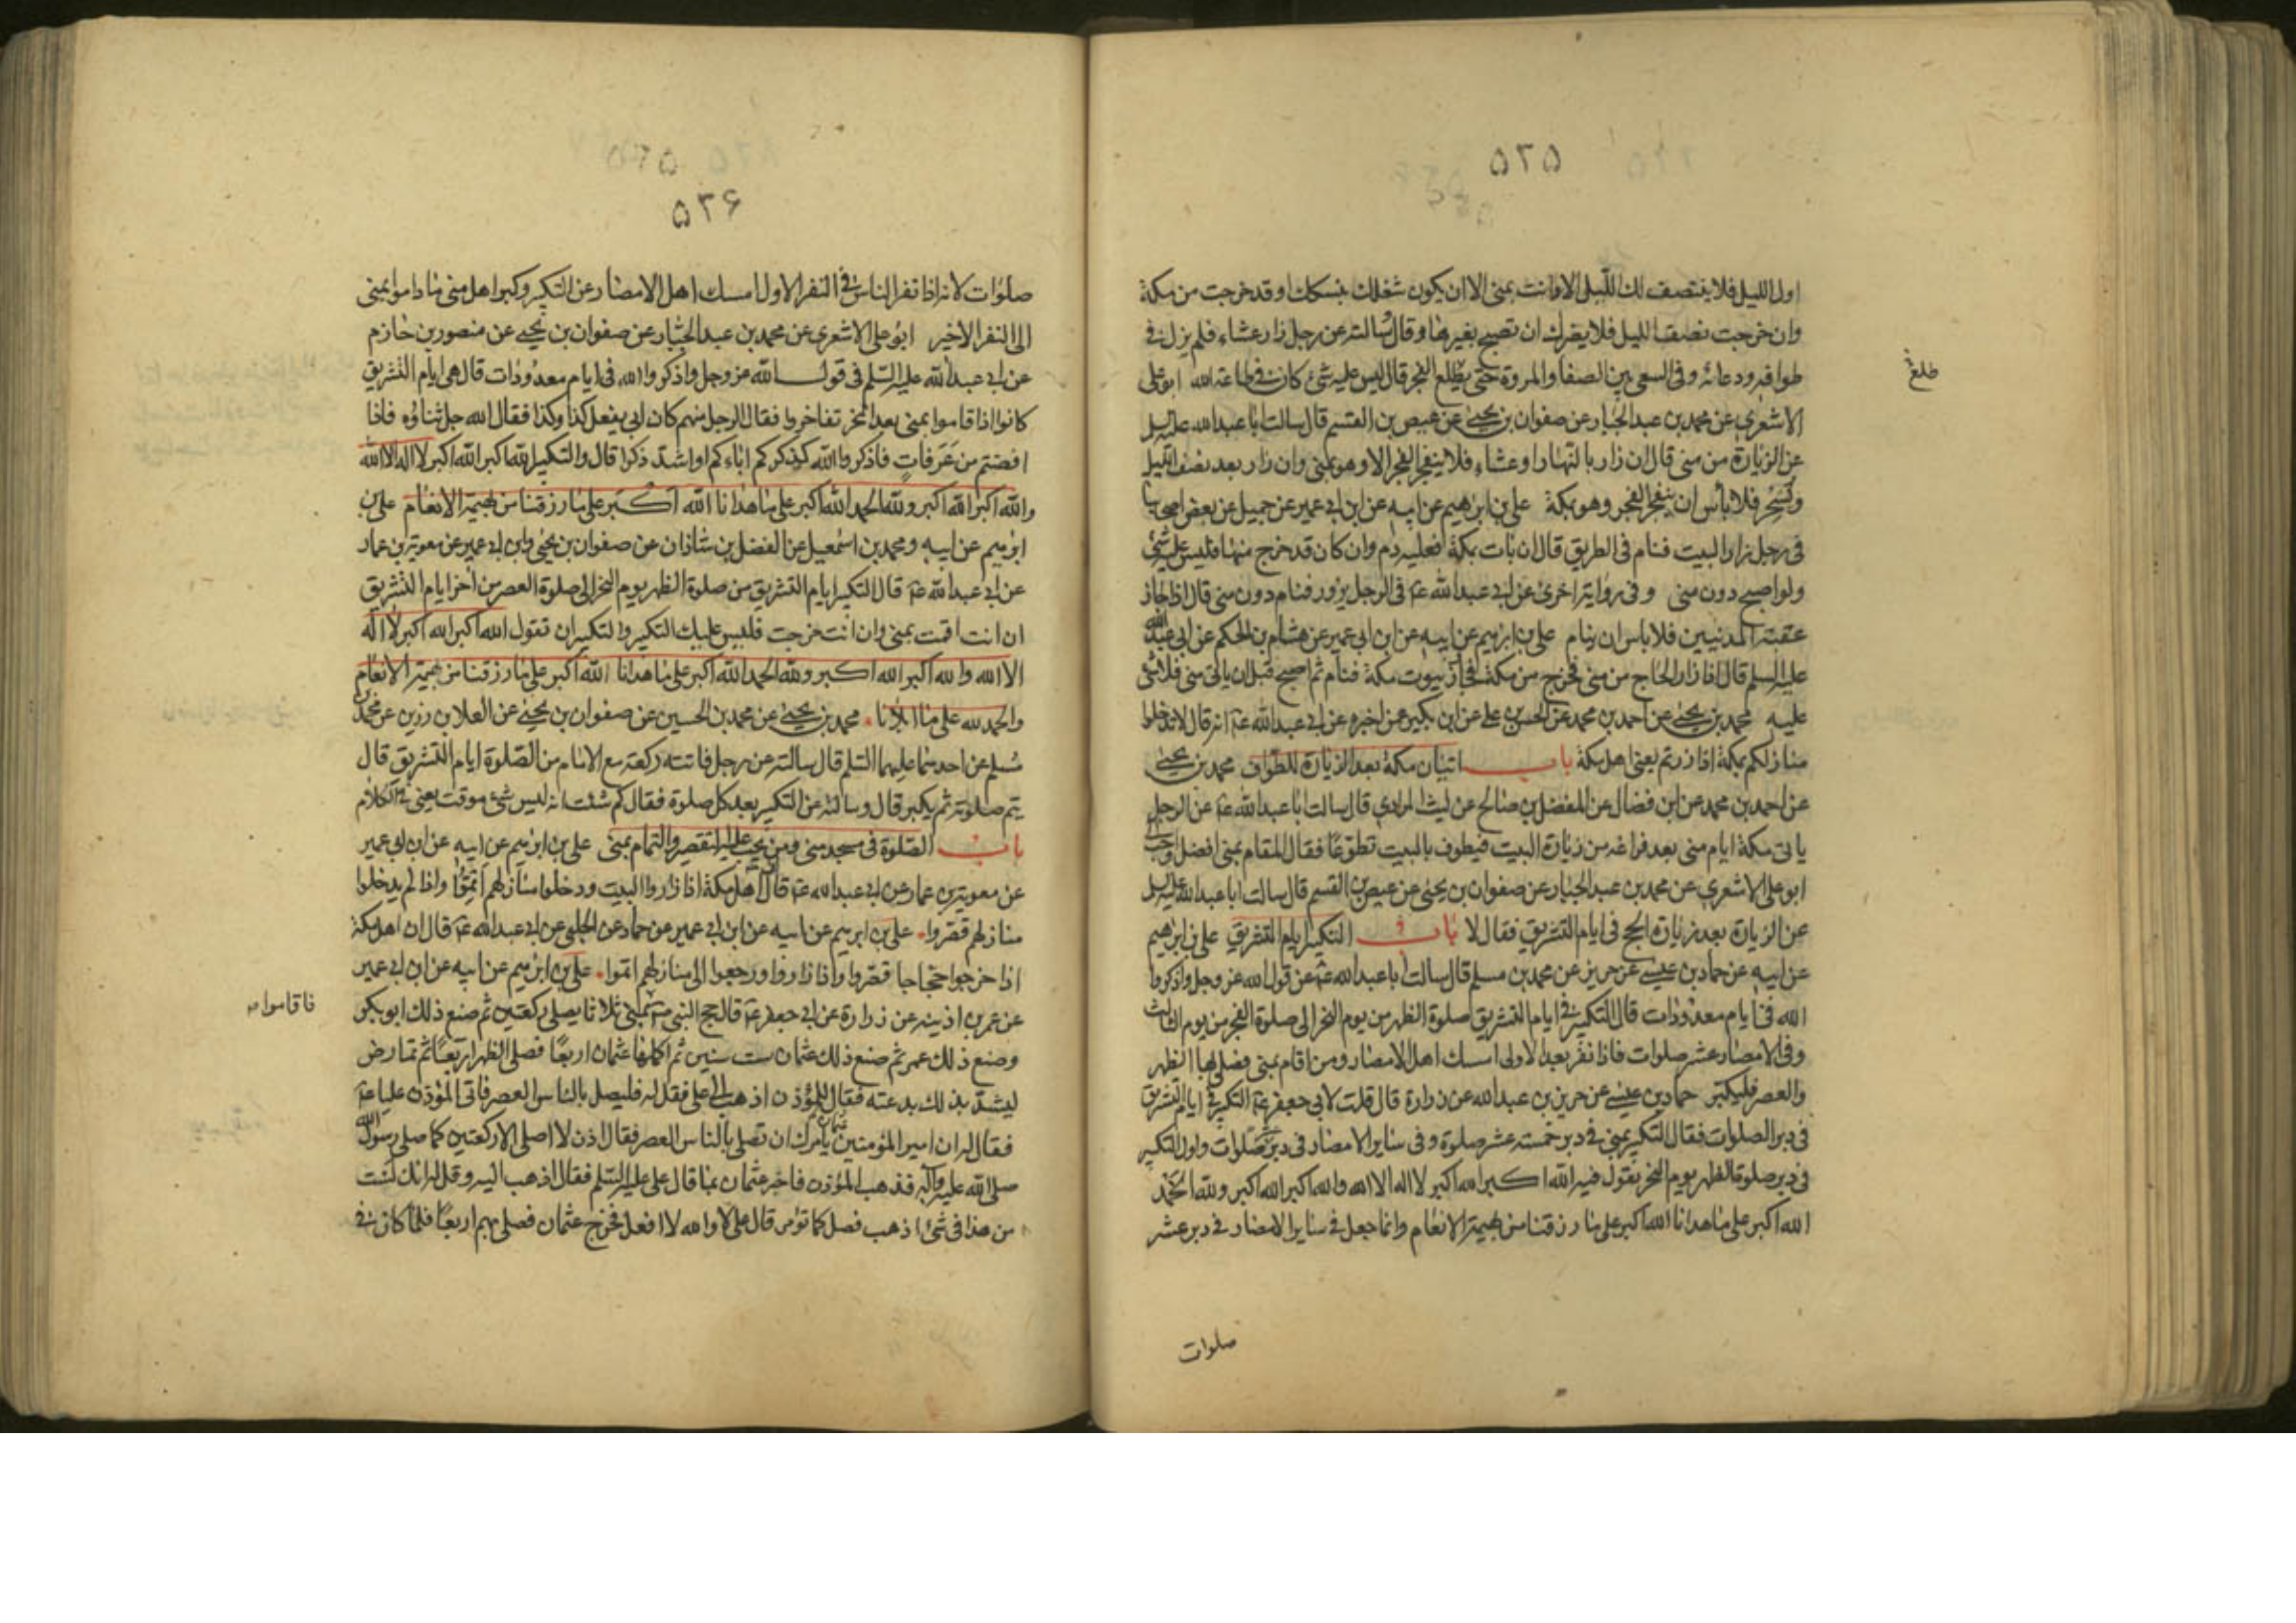 ۵۲۵
اول الليل فلا ينتصف لك الليل الا وانت بمنى الا ان يكون شغلك بنسكك او قد خرجت من مكة
وان خرجت نصف الليل فلا يضرك ان تصبح بغيرها وقال سالته عن رجل زار عشاء فلم يزل في
طوافه ودعائه وفي السعي بين الصفا والمروة حتى يطلع الفجر قال ليس عليه شئ كان في طاعة الله ابو علي
طلع
الاشعري عن محمد بن عبد الجبار عن صفوان بن يحيى عن عيص بن القسم قال سالت ابا عبد الله عليه السلم
عن الزيارة من منى قال ان زار بالنهار او عشاء فلا ينفجر الفجر الا وهو بمنى وان زار بعد نصف الليل
وسحر فلا باس ان ينفجر الفجر وهو بمكة علي بن ابرهيم عن ابيه عن ابن ابي عمير عن جميل عن بعض اصحابنا
في رجل زار البيت فنام في الطريق قال ان بات بمكة فعليه دم وان كان قد خرج منها فليس عليه شئ
ولو اصبح دون منى وفي رواية اخرى عن ابي عبد الله عۤ في الرجل يزور فنام دون منى قال اذا جاز
عقبة المدنيين فلا باس ان ينام علي بن ابرهيم عن ابيه عن ابن ابي عمير عن هشام بن الحكم عن ابي عبد الله
عليه السلم قال اذا زار الحاج من منى فخرج من مكة فجاز بيوت مكة فنام ثم اصبح قبل ان ياتي منى فلا شئ
عليه محمد بن يحيى عن احمد بن محمد عن الحسن بن علي عن ابن بكير عمن اخبره عن ابي عبد الله عۤ انه قال لا تدخلوا
منازلكم بمكة اذا زرتم يعني اهل مكة باب اتيان مكة بعد الزيارة للطواف محمد بن يحيى
عن احمد بن محمد عن ابن فضال عن المفضل بن صالح عن ليث المرادي قال سالت ابا عبد الله عۤ عن الرجل
ياتي مكة ايام منى بعد فراغه من زيارة البيت فيطوف بالبيت تطوعا فقال المقام بمنى افضل واحب الي
ابو علي الاشعري عن محمد بن عبد الجبار عن صفوان بن يحيى عن عيص بن القسم قال سالت ابا عبد الله عليه السلم
عن الزيارة بعد زيارة الحج في ايام التشريق فقال لا باب التكبير ايام التشريق علي بن ابرهيم
عن ابيه عن حماد بن عيسى عن حريز عن محمد بن مسلم قال سالت ابا عبد الله عۤ عن قول الله عز وجل واذكروا
الله في ايام معدودات قال التكبير في ايام التشريق صلوة الظهر من يوم النحر الى صلوة الفجر من يوم الثالث
وفي الامصار عشر صلوات فاذا نفر بعد الاولى امسك اهل الامصار ومن اقام بمنى فصلى بها الظهر
والعصر فليكبر حماد بن عيسى عن حريز بن عبد الله عن زرارة قال قلت لابي جعفر عۤ التكبير في ايام التشريق
في دبر الصلوات فقال التكبير بمنى في دبر خمسة عشر صلوة وفي ساير الامصار في دبر عشر صلوات واول التكبير
في دبر صلوة الظهر يوم النحر يقول فيه الله اكبر الله اكبر لا اله الا الله والله اكبر الله اكبر ولله الحمد
الله اكبر على ما هدانا الله اكبر على ما رزقنا من بهيمة الانعام وانما جعل في ساير الامصار في دبر عشر
صلوات
۵۲۶
صلوات لانه اذا نفر الناس في النفر الاول امسك اهل الامصار عن التكبير وكبر اهل منى ما داموا بمنى
الى النفر الاخير ابو علي الاشعري عن محمد بن عبد الجبار عن صفوان بن يحيى عن منصور بن حازم
عن ابي عبد الله عليه السلم في قول الله عز وجل واذكروا الله في ايام معدودات قال هي ايام التشريق
كانوا اذا قاموا بمنى بعد النحر تفاخروا فقال الرجل منهم كان ابي يفعل كذا وكذا فقال الله جل ثناؤه فاذا
افضتم من عرفات فاذكروا الله كذكركم اباءكم او اشد ذكرا قال والتكبير الله اكبر الله اكبر لا اله الا الله
والله اكبر الله اكبر ولله الحمد الله اكبر على ما هدانا الله اكبر على ما رزقنا من بهيمة الانعام علي بن
ابرهيم عن ابيه ومحمد بن اسمعيل عن الفضل بن شاذان عن صفوان بن يحيى وابن ابي عمير عن معوية بن عمار
عن ابي عبد الله عۤ قال التكبير ايام التشريق من صلوة الظهر يوم النحر الى صلوة العصر من اخر ايام التشريق
ان انت اقمت بمنى وان انت خرجت فليس عليك التكبير والتكبير ان تقول الله اكبر الله اكبر لا اله
الا الله والله اكبر الله اكبر ولله الحمد الله اكبر على ما هدانا الله اكبر على ما رزقنا من بهيمة الانعام
والحمد لله على ما ابلانا محمد بن يحيى عن محمد بن الحسين عن صفوان بن يحيى عن العلا بن رزين عن محمد بن
مسلم عن احدهما عليهما السلم قال سالته عن رجل فاتته ركعة مع الامام من الصلوة ايام التشريق قال
يتم صلوته ثم يكبر قال وسالته عن التكبير بعد كل صلوة فقال كم شئت انه ليس شئ موقت يعني في الكلام
باب الصلوة في مسجد منى ومن يجب عليه التقصير والتمام بمنى علي بن ابرهيم عن ابيه عن ابن ابي عمير
عن معوية بن عمار عن ابي عبد الله عۤ قال اهل مكة اذا زاروا البيت ودخلوا منازلهم اتموا واذا لم يدخلوا
منازلهم قصروا علي بن ابرهيم عن ابيه عن ابن ابي عمير عن حماد عن الحلبي عن ابي عبد الله عۤ قال ان اهل مكة
اذا خرجوا حجاجا قصروا واذا زاروا ورجعوا الى منازلهم اتموا علي بن ابرهيم عن ابيه عن ابن ابي عمير
عن عمر بن اذينه عن زرارة عن ابي جعفر عۤ قال حج النبي صۤ بمنى ثلاثا يصلي ركعتين ثم صنع ذلك ابو بكر
فاقاموا
وصنع ذلك عمر ثم صنع ذلك عثمان ست سنين ثم اكملها عثمان اربعا فصلى الظهر اربعا ثم تمارض
ليشد بذلك بدعته فقال للمؤذن اذهب الى علي فقل له فليصل بالناس العصر فاتى المؤذن عليا عۤ
فقال له ان امير المؤمنين يامرك ان تصلي بالناس العصر فقال اذن لا اصلي الا ركعتين كما صلى رسول الله
صلى الله عليه وآله فذهب المؤذن فاخبر عثمان بما قال علي عليه السلم فقال اذهب اليه وقل له انك لست
من هذا في شئ اذهب فصل كما تؤمر قال علي لا والله لا افعل فخرج عثمان فصلى بهم اربعا فلما كان في